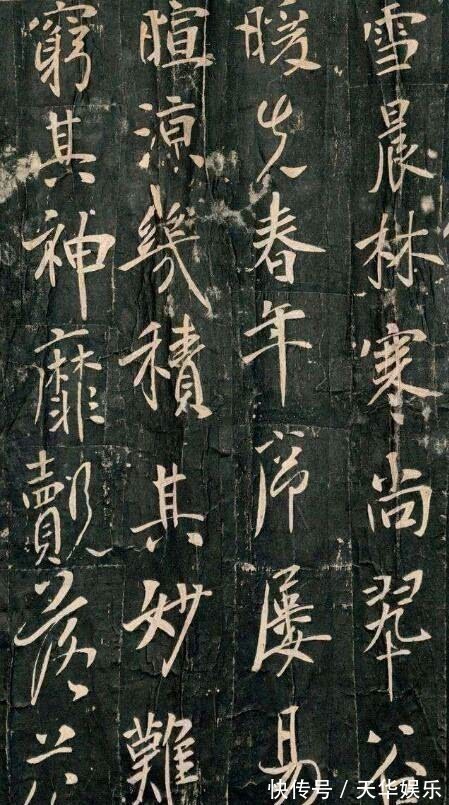 雪晨林寒尚翠
暖先春年屢易
暄涼幾積其妙難
窮其神靡覿落
快传号/天华娱乐